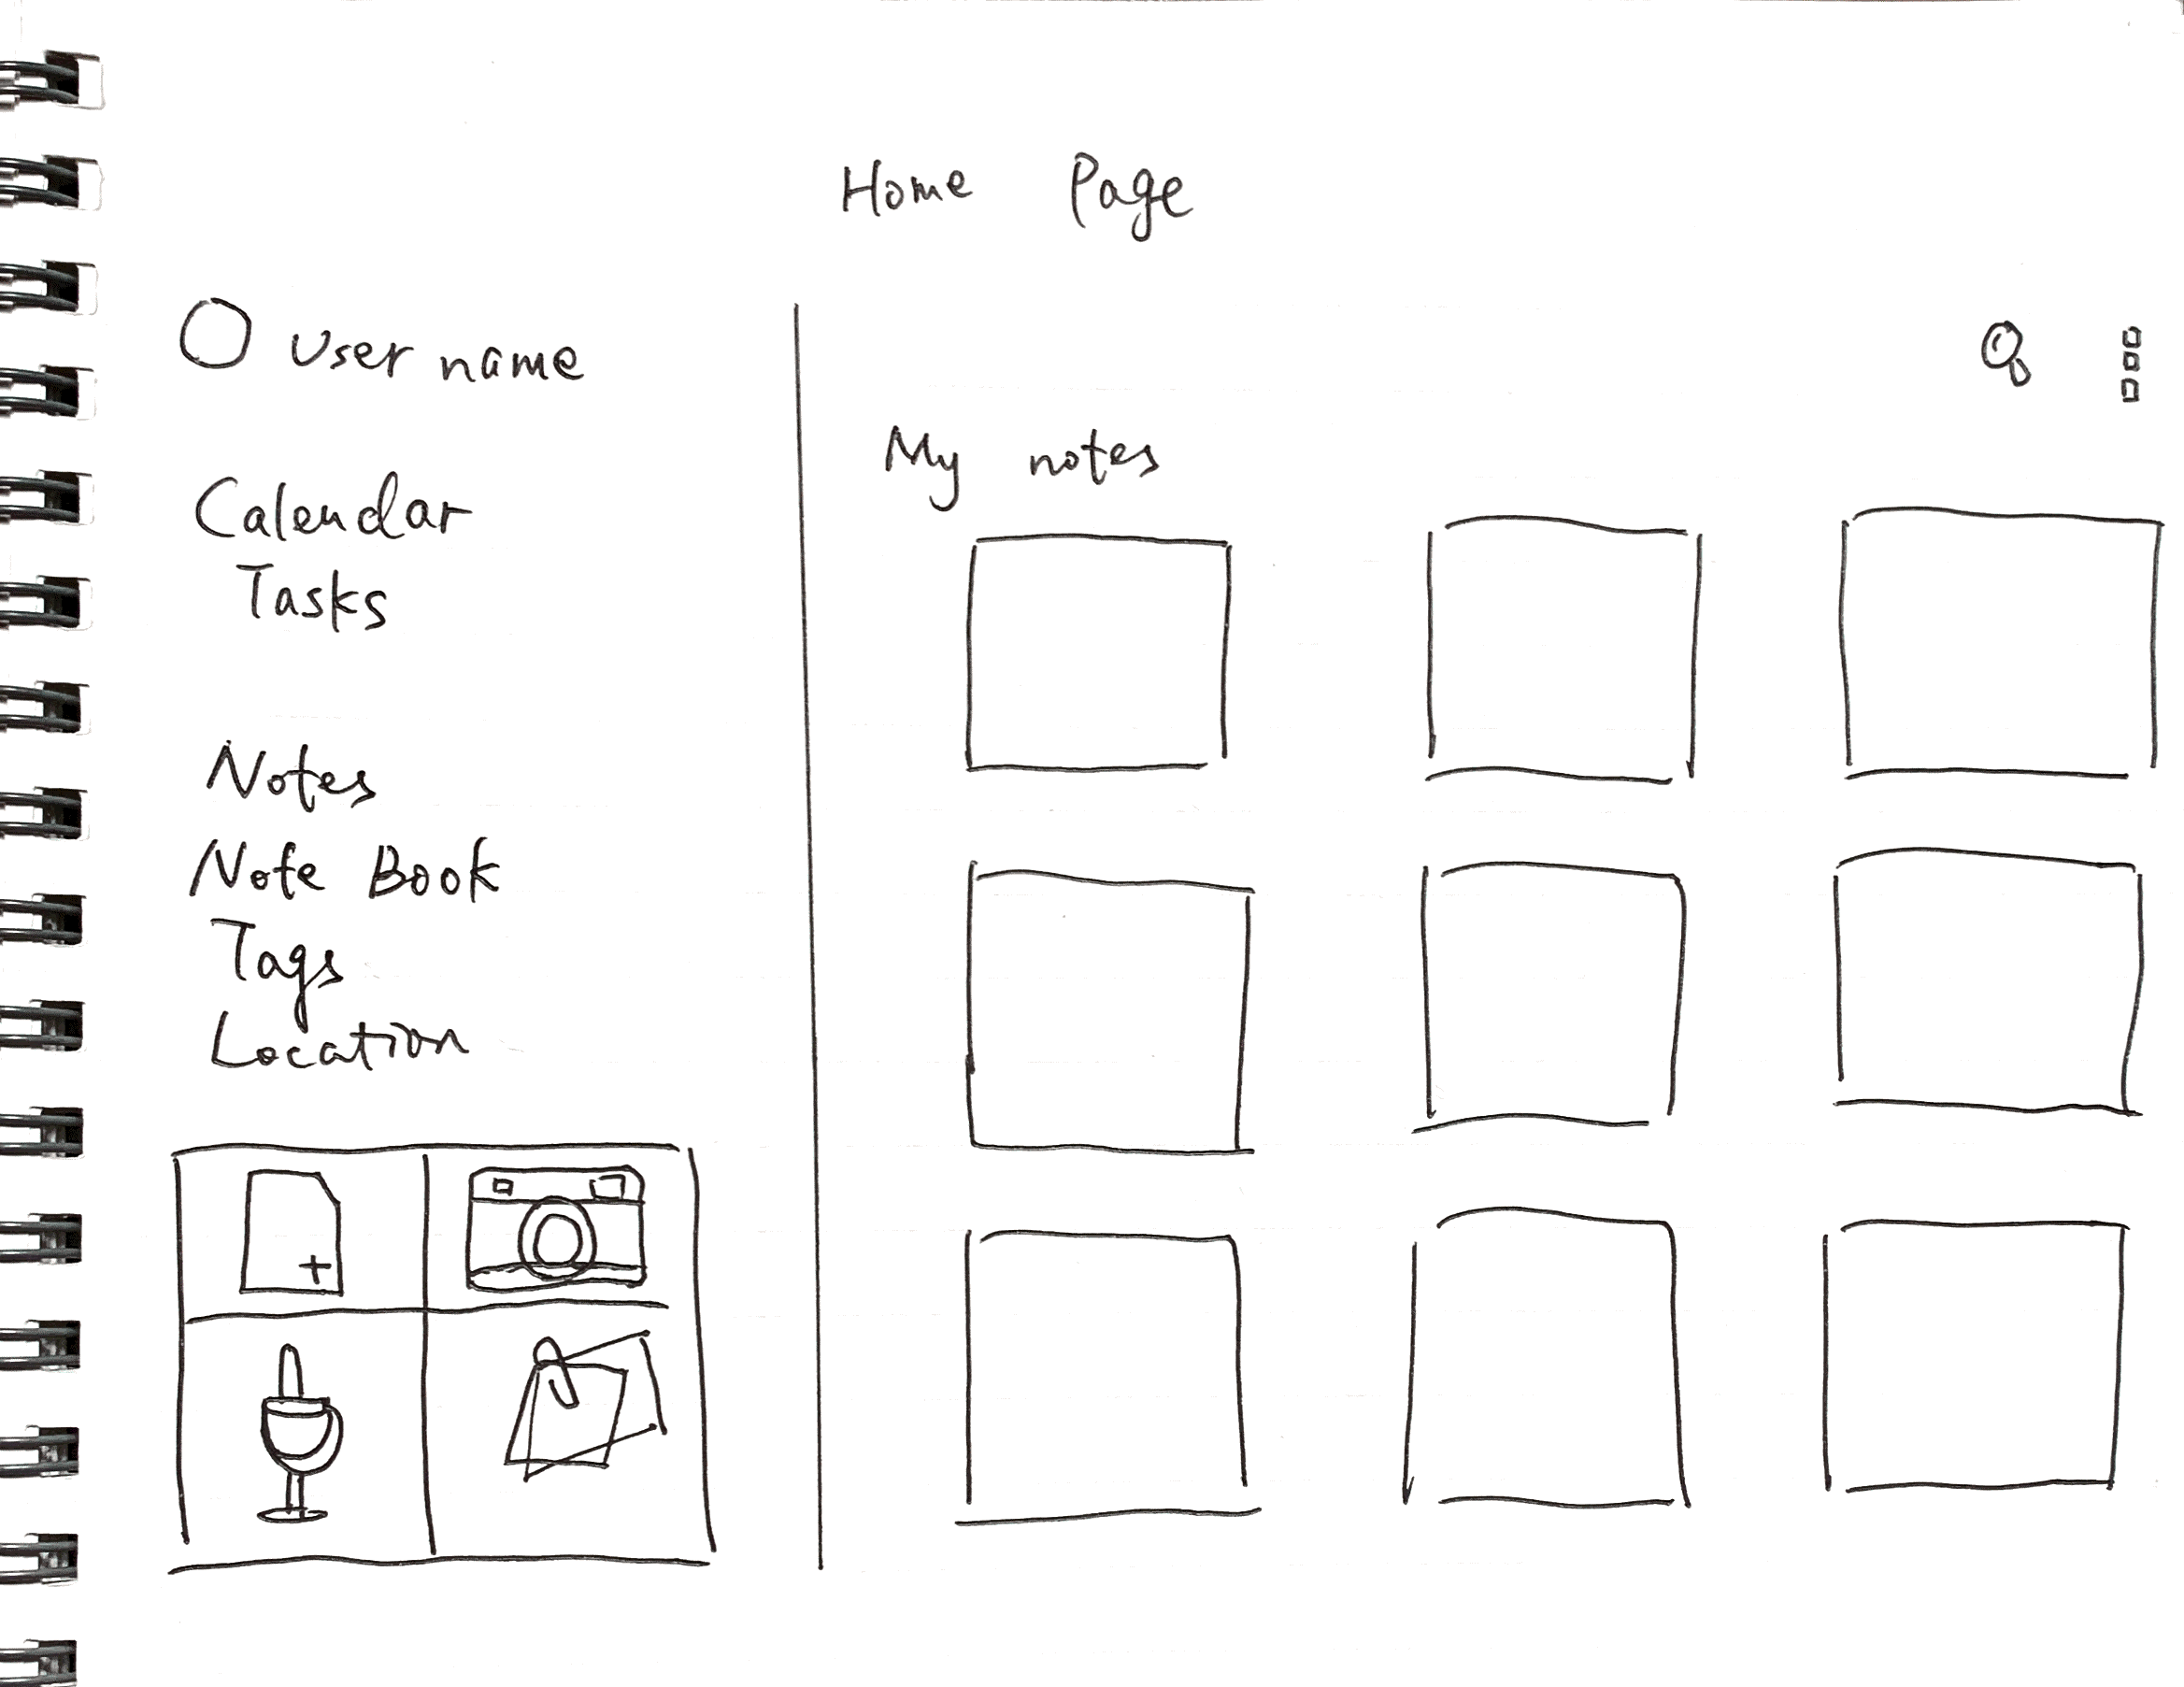 Home Page
User name
Calendar
Tasks
Notes
Note Book
Tags
Location
My notes